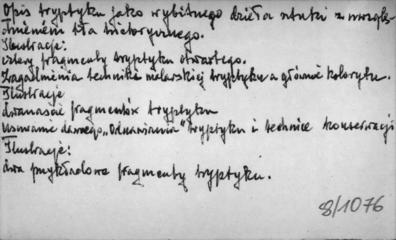 Opis tryptyku jako wybitnego dzieła sztuki z uwzglę-
dnieniem tła historycznego.
Ilustracje:
cztery fragmenty tryptyku otwartego.
Zagadnienia technika malarskiej tryptyku a głównie kolorytu.
Ilustracje
dwanaście fragmentów tryptyku
Usuwanie dawnego "Odnawiania" tryptyku i technice konserwacji
Ilustracje:
dwa przykładowe fragmenty tryptyku.
8/1076